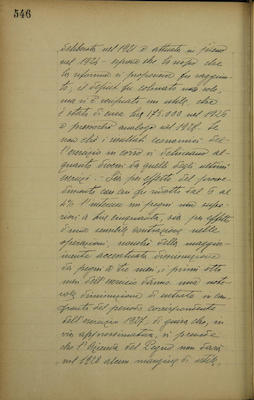 546
deliberata nel 1921 e attuata in pieno
nel 1924 - espone che lo scopo che
la riforma si proponeva fu raggiun-
to, il deficit fu colmato non solo,
ma si è conseguito un utile, che
è stato di circa Lire 175.000 nel 1926
e presumibil. analogo nel 1927. Se
non che i resultati economici del-
l'esercizio in corso si delineano al-
quanto diversi da quelli degli ultimi
esercizi. - Sia per effetto del provve-
dimento con cui fu ridotto dal 6 al
4% l'interesse sui pegni non supe-
riori a lire cinquanta, sia per effetto
d'una sensibile contrazione nelle
operazioni, nonchè della maggior-
mente accentuata diminuzione
da pegni a tre mesi, i primi otto
mesi dell'esercizio danno una note-
vole diminuzione di entrate in con-
fronto del periodo corrispondente
dell'esercizio 1927: di guisa che, in
via approssimativa, si prevede
che l'Azienda del Pegno non darà
nel 1928 alcun margine di utile,